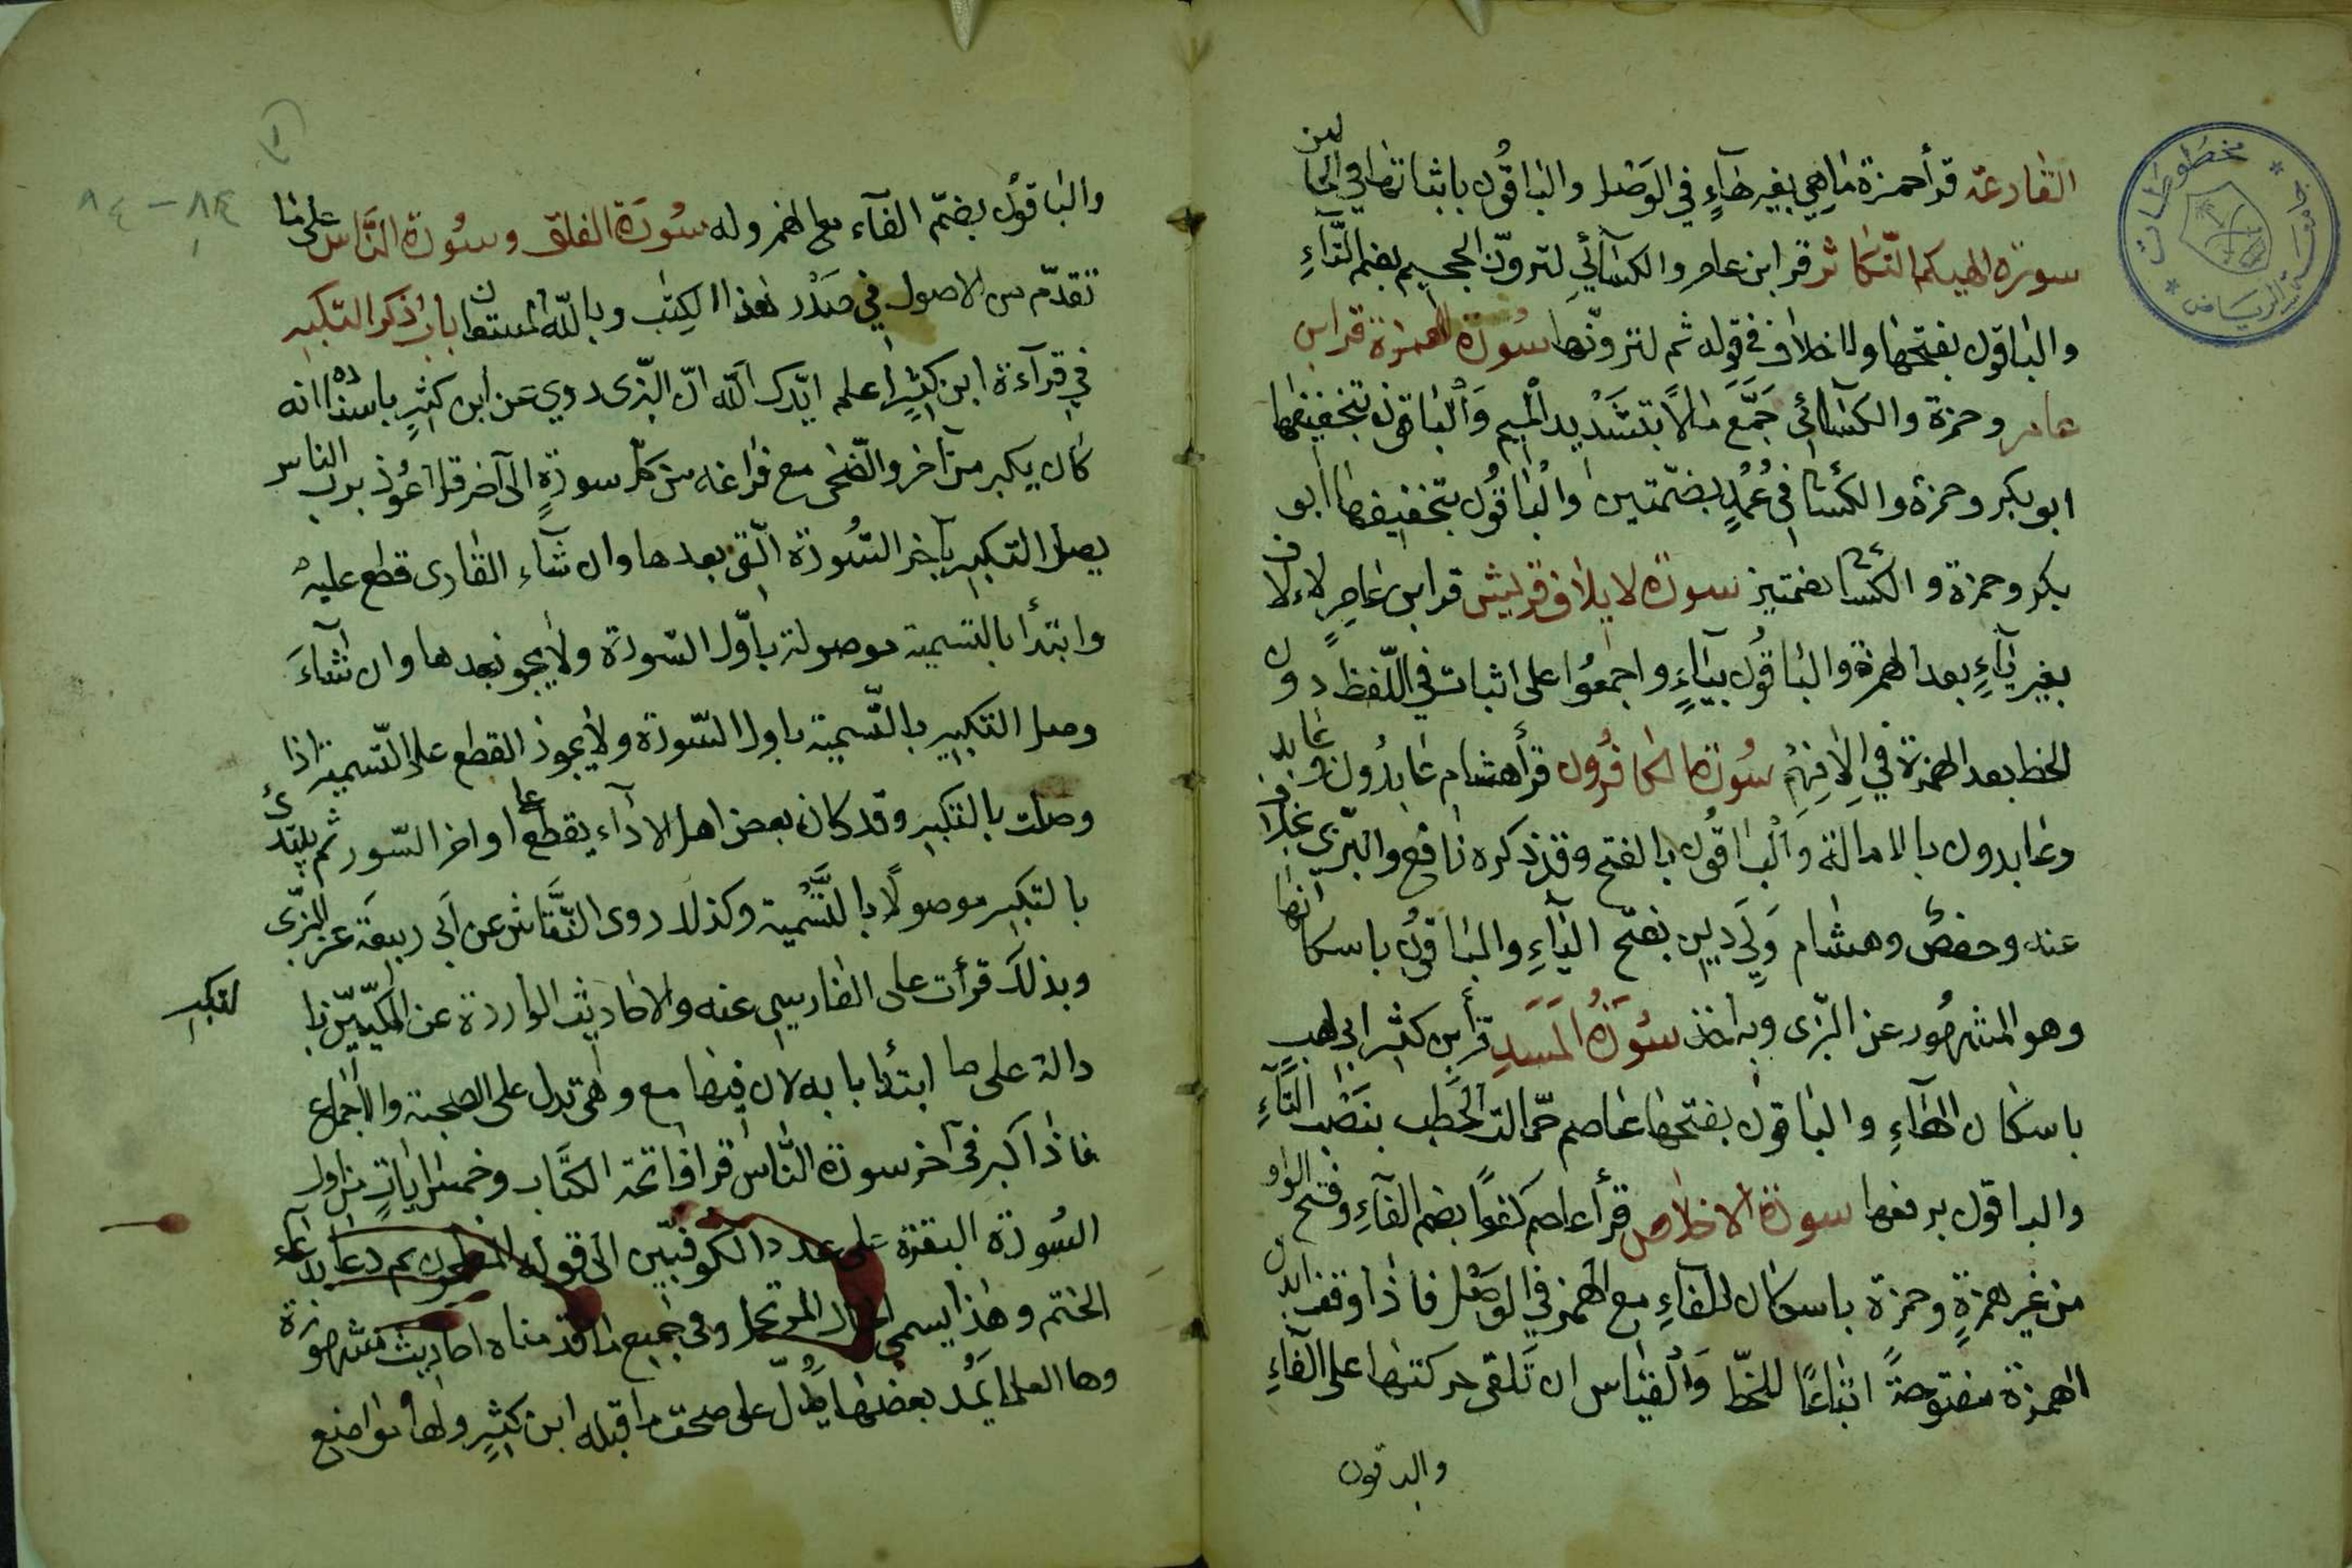 القارعة قرأ حمزة ماهي بغير هآءٍ في الوصل والباقون باثباتها في الحالين
سورة الهيكم التكاثر قرا ابن عامر والكسآئي لترون الجحيم بضم التآءِ
والباقون بفتحها ولا خلاف في قوله ثم لترونها سورة الهمزة قرا ابن
عامر وحمزة والكسآئي جمّع مالًا بتشديد الميم والباقون بتخفيفها
ابو بكر وحمزة والكسائي في عُمُدٍ بضمتين والباقون بتخفيفها ابو
بكر وحمزة والكسائي بضمتين سورة لايلاف قريش قرا ابن عامرٍ لالاف
بغير يآءٍ بعد الهمزة والباقون بيآءٍ واجمعوا على اثبات في اللفظ دون
الخط بعد الهمزة في الافهم سورة الكافرون قرأ هشام عابدون وعابد
وعابدون بالامالة والباقون بالفتح وقد ذكره نافع والبزي بخلاف
عنه وحفص وهشام ولي دين بفتح اليآءِ والباقون باسكانها
وهو المشهور عن البزى وبه اخذ سورة المسد قرأ ابن كثير ابى لهبٍ
باسكان الهآءِ والباقون بفتحها عاصم حمالة الحطب بنصب التآءِ
والباقون برفعها سورة الاخلاص قرأ عاصم كفوًا بضم الفآءِ وفتح الواو
من غير همزةٍ وحمزة باسكان الفآءِ مع الهمز في الوصل فاذا وقف ابدل
الهمزة مفتوحةً اتباعًا للخط والقياس ان تلقى حركتها على الفآءِ
والباقون
والباقون بضم الفآء مع الهمز وله سورة الفلق وسورة الناس على ما
تقدم من الاصول في صدر هذا الكتب وبالله المستعان باب ذكر التكبير
في قرآءة ابن كثيرٍ اعلم ايدك الله ان البزى روي عن ابن كثيرٍ باسناده انه
كان يكبر من آخر والضحى مع فراغه من كل سورةٍ الى آخر قل اعوذ برب الناس
يصل التكبير بآخر السورة التى بعدها وان شآء القارى قطع عليه
وابتدأ بالتسمية موصولة باول السورة ولا يجوز بعدها وان شآءَ
وصل التكبير بالتسمية باول السورة ولا يجوز القطع على التسمية اذا
وصلت بالتكبير وقد كان بعض اهل الادآء يقطع على اواخر السور ثم يبتدئ
بالتكبير موصولًا بالتسمية وكذلك روى النقاش عن ابى ربيعة عن البزى
وبذلك قرأت على الفارسي عنه والاحاديث الواردة عن المكيين با
لتكبير
دالة على ما ابتدأنا به لان فيها مع وهى تدل على الصحبة والاجماع
فاذا كبر فى آخر سورة الناس قرا فاتحة الكتاب وخمس اياتٍ من اول
السورة البقرة على عدد الكوفيين الى قوله المفلحون ثم دعا بدعآء
الختم وهذا يسمى الحال المرتحل وفى جميع ما قدمناه احاديث مشهورة
بعضها يدل على صحة ما قبله ابن كثيرٍ ولها مواضع
مخطوطات
جامعة الرياض